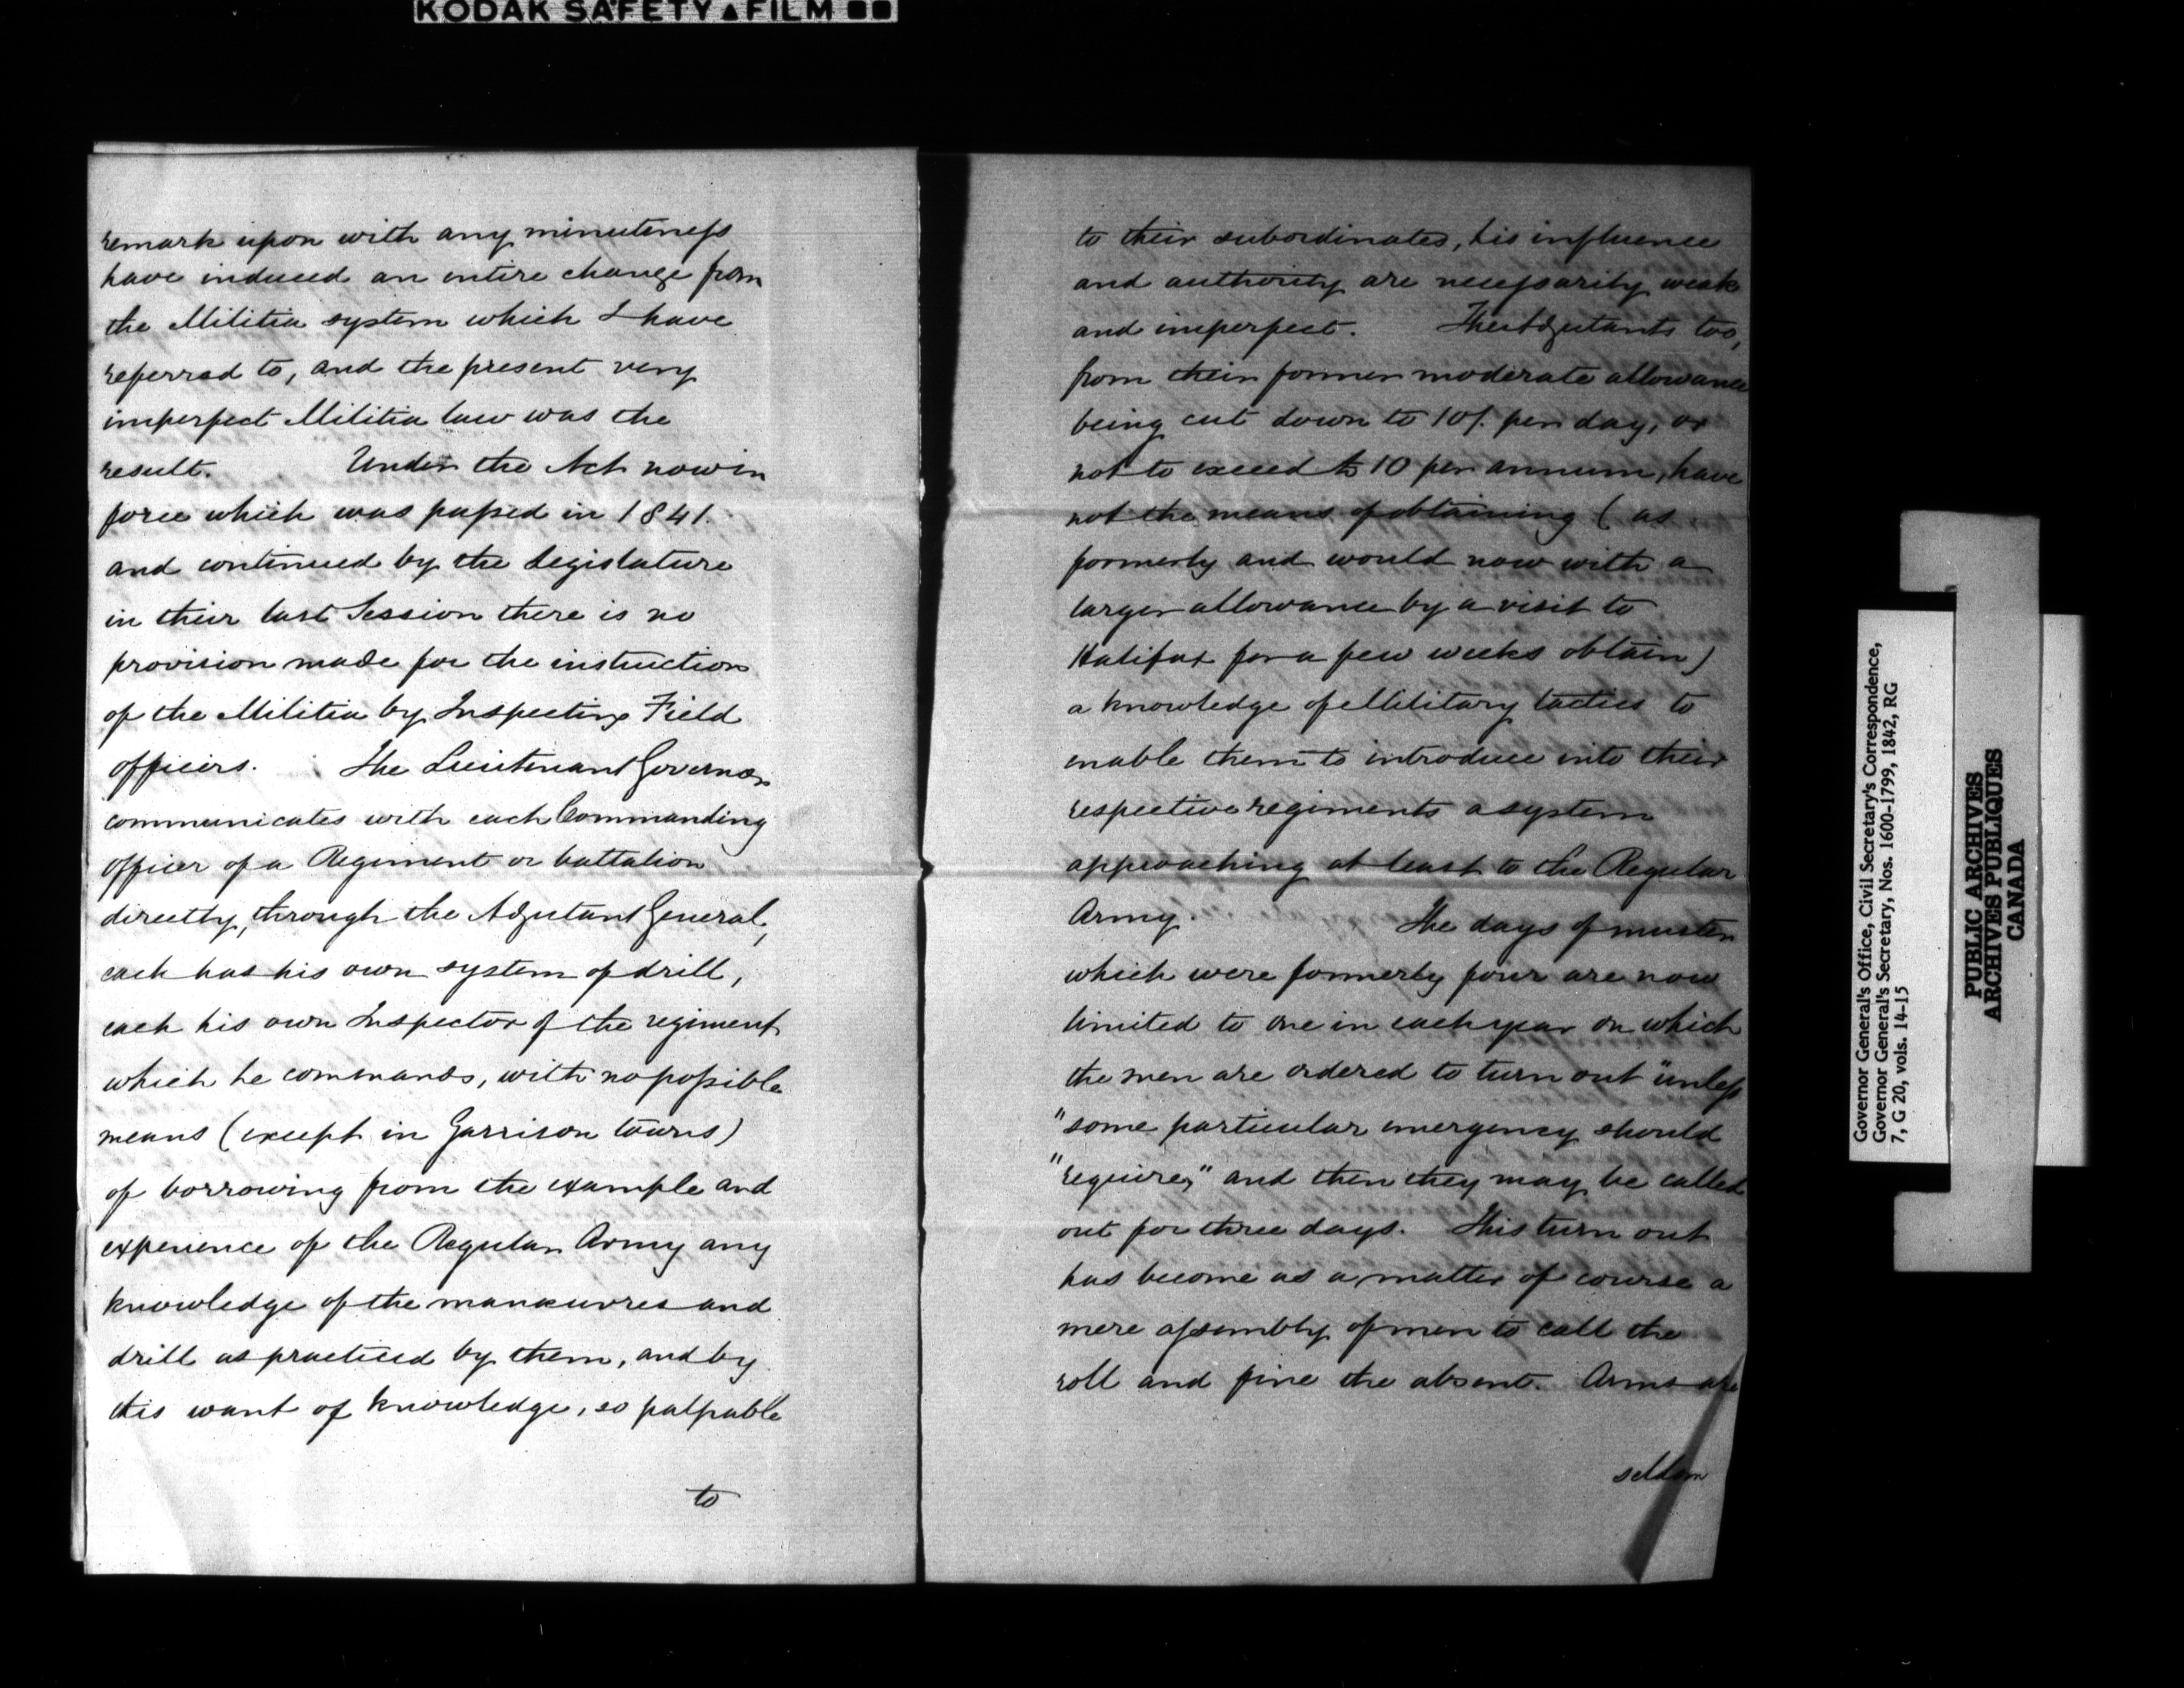 KODAK SAFETY ▲ FILM ■■
remark upon with any minuteness
have induced an entire change from
the Militia system which I have
referred to, and the present very
imperfect Militia law was the
result. Under the Act now in
force which was passed in 1841.
and continued by the Legislature
in their last Session there is no
provision made for the instruction
of the Militia by Inspecting Field
officers. The Lieutenant Governor
communicates with each Commanding
officer of a Regiment or battalion
directly, through the Adjutant General,
each has his own system of drill,
each his own Inspector of the regiment
which he commands, with no possible
means (except in Garrison towns)
of borrowing from the example and
experience of the Regular Army any
knowledge of the manœuvres and
drill as practiced by them, and by
this want of knowledge, so palpable
to
to their subordinates, his influence
and authority are necessarily weak
and imperfect. The Adjutants too,
from their former moderate allowance
being cut down to 10/. per day, or
not to exceed £10 per annum, have
not the means of obtaining (as
formerly and would now with a
larger allowance by a visit to
Halifax for a few weeks obtain)
a knowledge of Military tactics to
enable them to introduce into their
respective regiments a system
approaching at least to the Regular
Army. The days of muster
which were formerly four are now
limited to one in each year on which
the men are ordered to turn out "unless
"some particular emergency should
"require," and then they may be called
out for three days. This turn out
has become as a matter of course a
mere assembly of men to call the
roll and fine the absent. Arms are
seldom
Governor General's Office, Civil Secretary's Correspondence,
Governor General's Secretary, Nos. 1600-1799, 1842, RG
7, G 20, vols. 14-15
PUBLIC ARCHIVES
ARCHIVES PUBLIQUES
CANADA